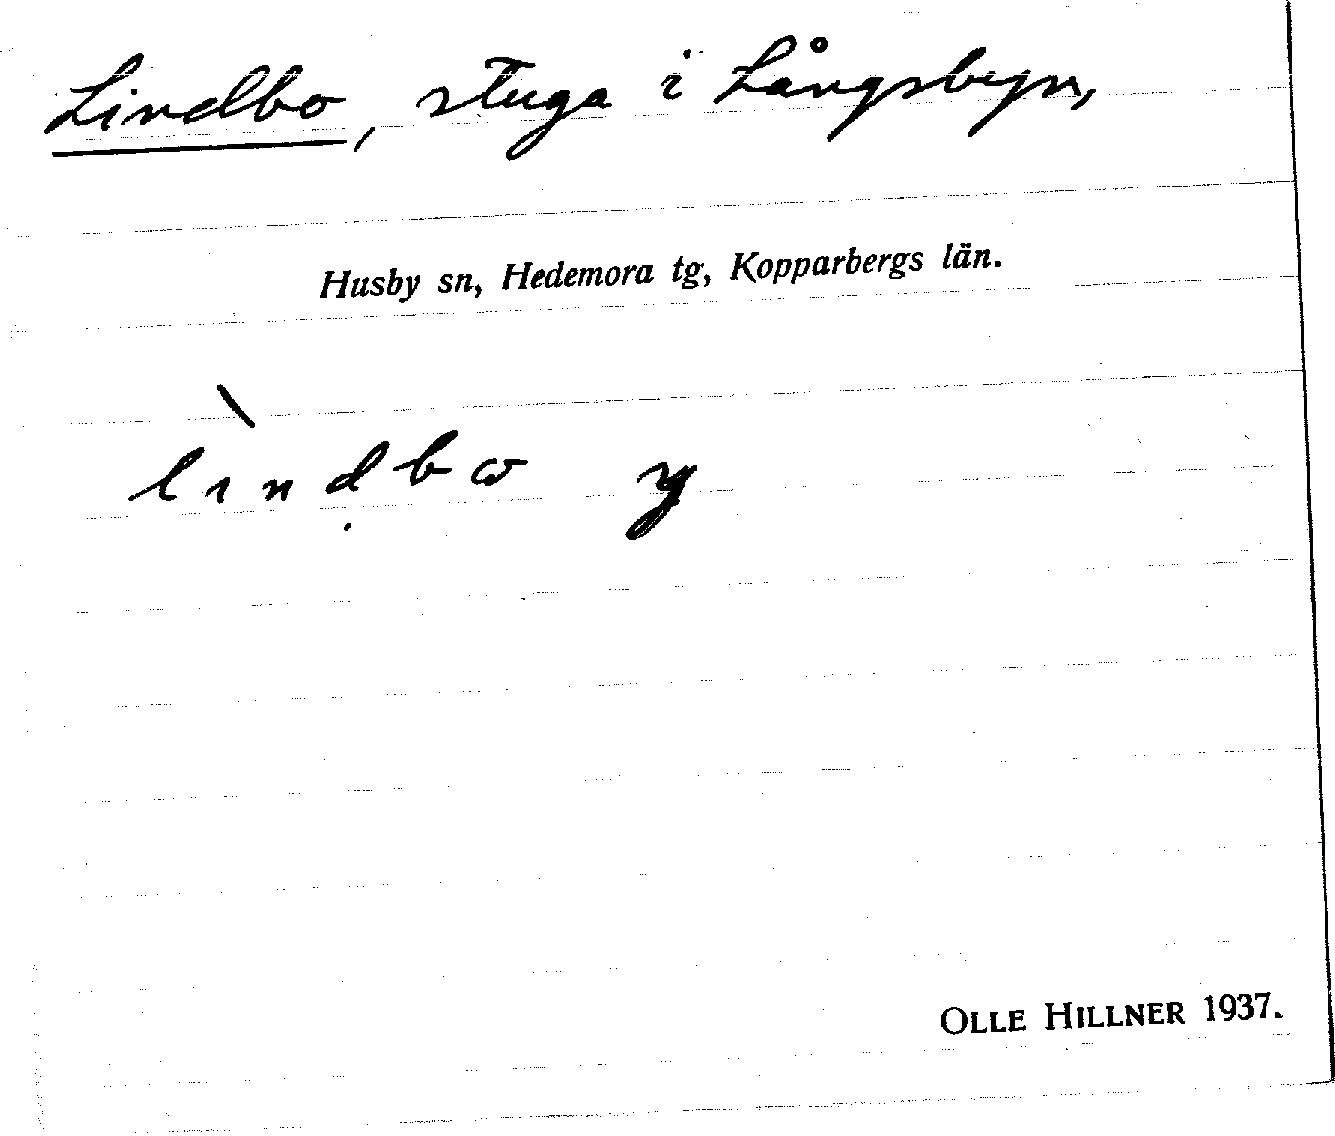 Lindbo, stuga i Långsbyn,
Husby sn, Hedemora tg, Kopparbergs län.
lìndbω y
OLLE HILLNER 1937.